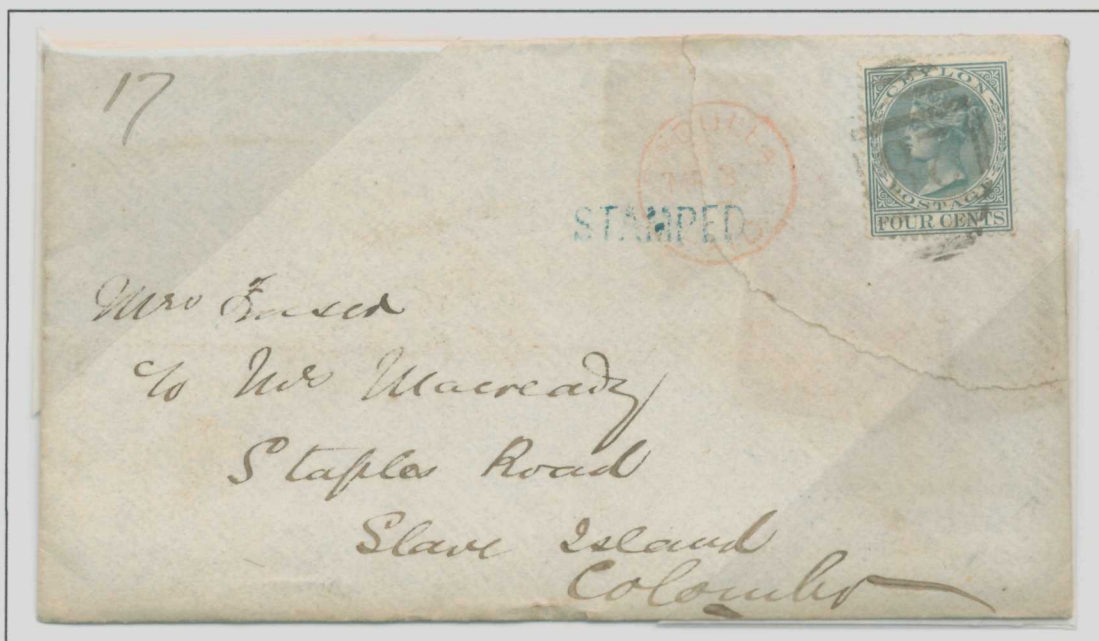 17
CEYLON
POSTAGE
FOUR CENTS
STAMPED
Mrs Fraser
c/o Mr Macready
Staples Road
Slave Island
Colombo